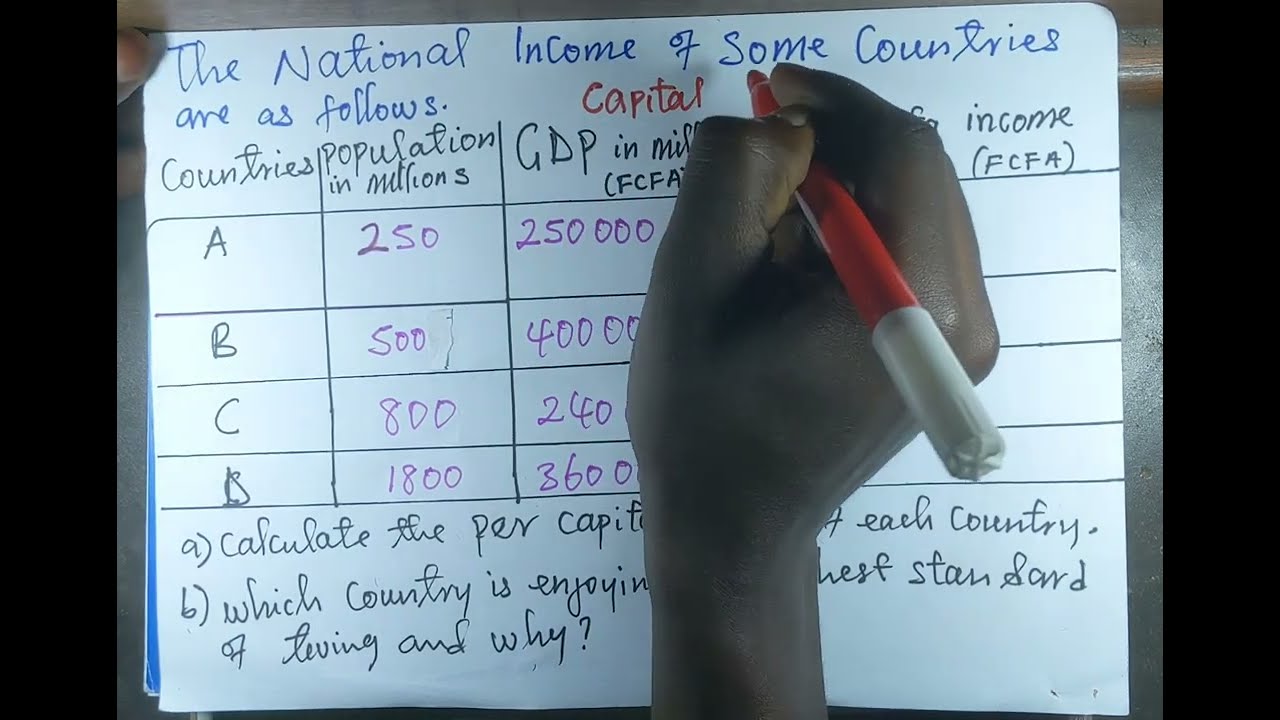 The National Income of Some Countries
are as follows.
Capital
Countries
Population in millions
GDP in mill
(FCFA
income
(FCFA)
A 250 250 000
B 500 400 00
C 800 240
D 1800 3600
a) Calculate the per capit each Country.
b) which Country is enjoyin hest standard
of living and why?